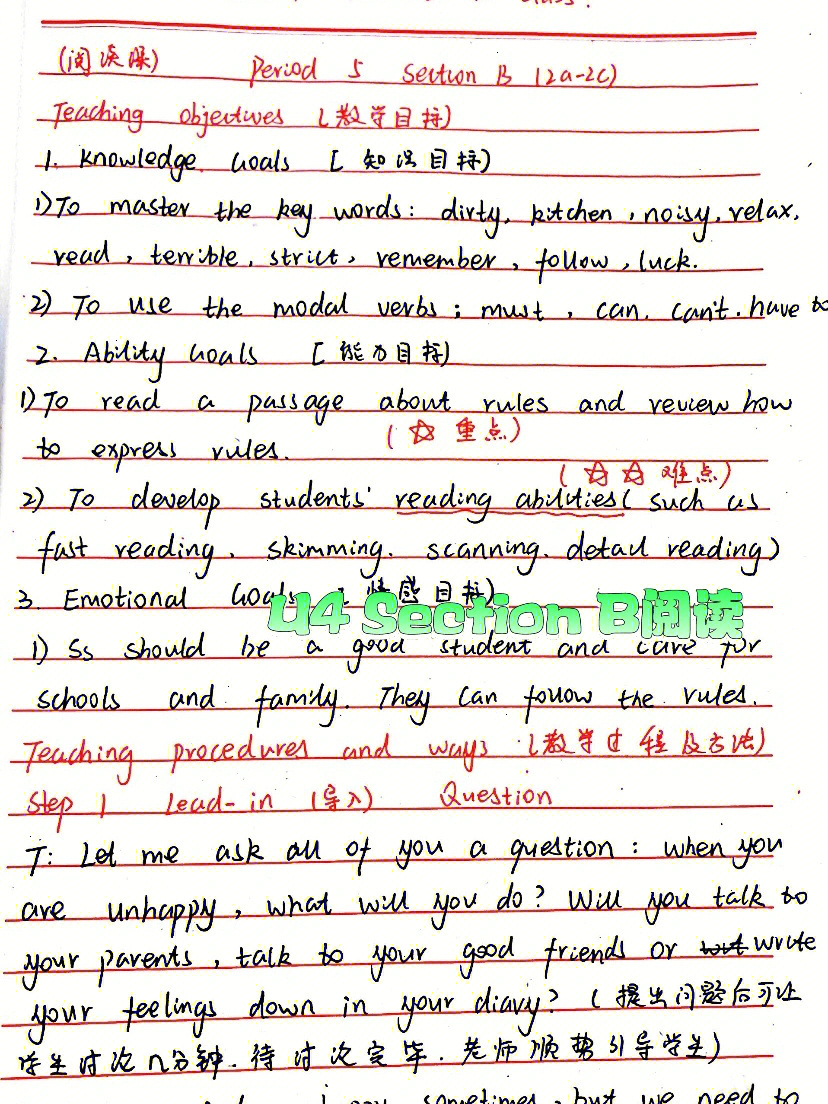 class.
(阅读课) Period 5 Section B (2a-2c)
Teaching objectives (教学目标)
1. Knowledge Goals [知识目标)
1) To master the key words: dirty, kitchen, noisy, relax,
read, terrible, strict, remember, follow, luck.
2) To use the modal verbs: must, can, can't, have to
2. Ability Goals [能力目标)
1) To read a passage about rules and review how
to express rules. (☆ 重点)
(☆☆难点)
2) To develop students' reading abilities (such as
fast reading, skimming, scanning, detail reading)
3. Emotional Goals 情感目标)
U4 Section B阅读
1) Ss should be a good student and care for
schools and family. They can follow the rules.
Teaching procedures and ways (教学过程及方法)
Step 1 Lead-in (导入) Question
T: Let me ask all of you a question: when you
are unhappy, what will you do? Will you talk to
your parents, talk to your good friends or write
your feelings down in your diary? (提出问题后可让
学生讨论几分钟.待讨论完毕.老师顺势引导学生)
sometimes, but we need to